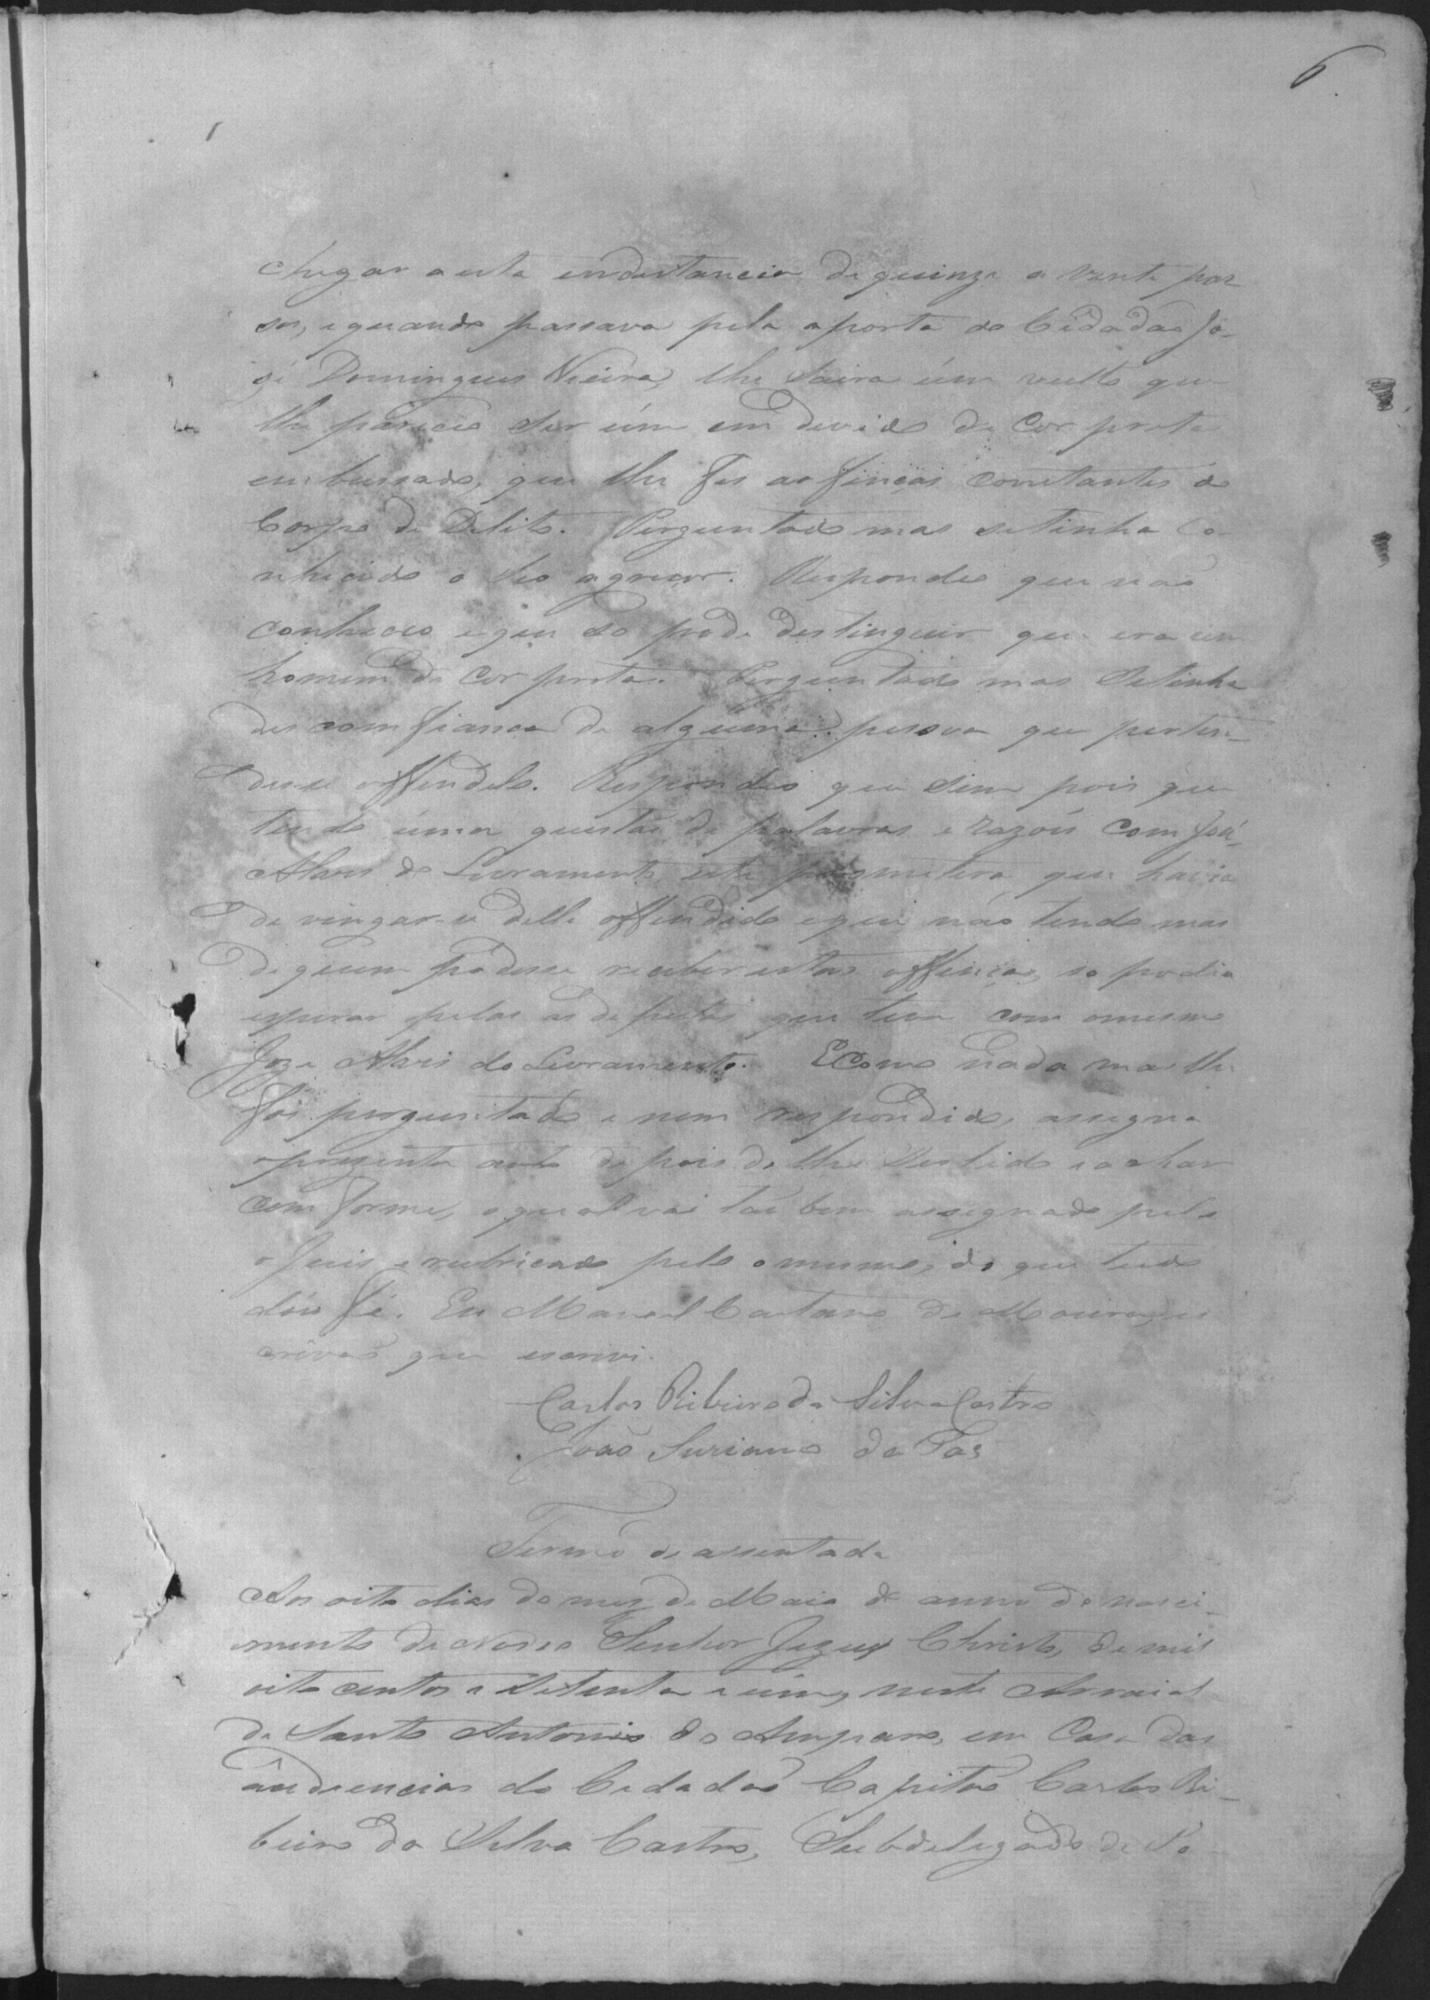 6
chegar a esta endistancia de quinze a vente pas
sos, e quando passava pela a porta do Cidadão Jo-
zé Domingues Vieira, lhe saira úm vulto que
lhe pareceo ser úm endevido de Cor preta
embussado, que lhe fes as finças constantes do
Corpo de Delito. Perguntado mas se tinha co
nhecido o seo agreçor. Respondeo que não
conheceo e que só pode destinguir que era um
homem de Cor preta. Perguntado mas se tinha
descomfiança de algúma pessoa que perten-
desse offendelo. Respondeo que sim pois que
tendo úma questão de palavras e razois com José
Alves do Livramento, este prometera que havia
de vingar-se delle offendido e que não tendo mas
de quem podesse receber estas offenças, só podia
esperar pelas as desputas que teve com o mesmo
Joze Alves do Livramento. E Como nada mas lhe
foi perguntado e nem respondido, assigna
o prezente auto depois de lhe ser lido e achar
comforme, o qual vai tão bem assignado pelo
o Juis e rubricado pelo o mesmo, do que tudo
dou fé. Eu Manoel Caetano de Moura, es
crivão que escrivi.
Carlos Ribeiro da Silva Castro
João Suriano da Pas
Termo de assentada
Aos oito dias do mez de Maio do anno do nasci-
mento de Nosso Senhor Jezus Christo, de mil
oito centos e setenta e úm, neste Arraial
de Santo Antonio do Amparo, em Casa das
audiencias do Cidadão Capitão Carlos Ri-
beiro da Silva Castro, Subdelegado de Po